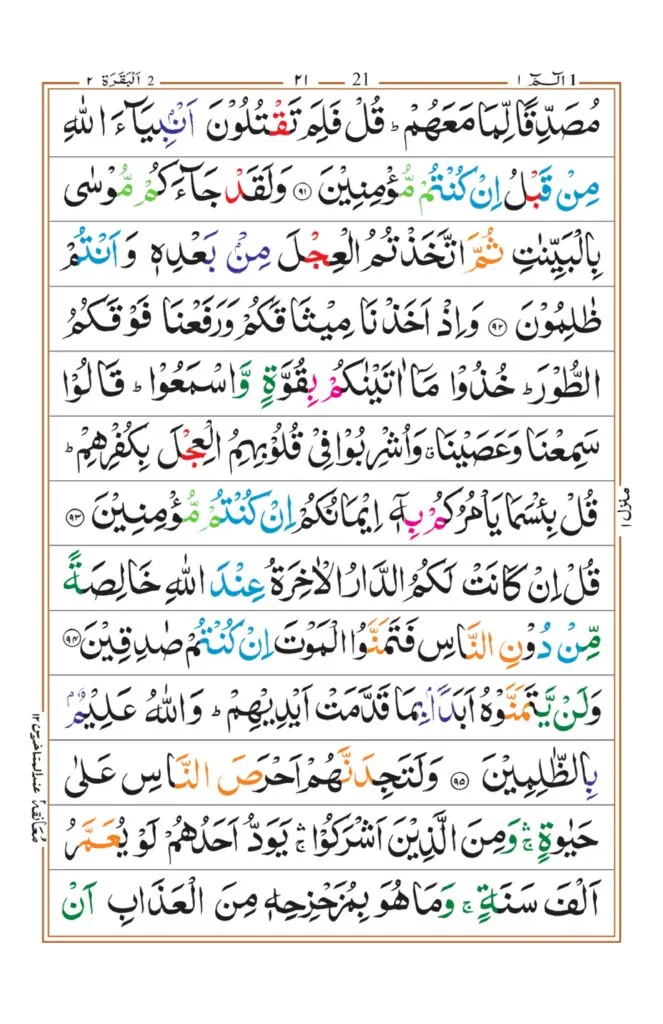 الٓـمّٓ ١ 1
21
٢١
2 اَلْبَقَرَة ٢
مُصَدِّقًا لِّمَا مَعَهُمْ ؕ قُلْ فَلِمَ تَقْتُلُوْنَ اَنْۢبِيَآءَ اللّٰهِ
مِنْ قَبْلُ اِنْ كُنْتُمْ مُّؤْمِنِيْنَ ﴿۹۱﴾ وَلَقَدْ جَآءَكُمْ مُّوْسٰى
بِالْبَيِّنٰتِ ثُمَّ اتَّخَذْتُمُ الْعِجْلَ مِنْۢ بَعْدِهٖ وَاَنْتُمْ
ظٰلِمُوْنَ ﴿۹۲﴾ وَاِذْ اَخَذْنَا مِيْثَاقَكُمْ وَرَفَعْنَا فَوْقَكُمُ
الطُّوْرَ ؕ خُذُوْا مَآ اٰتَيْنٰكُمْ بِقُوَّةٍ وَّاسْمَعُوْا ؕ قَالُوْا
سَمِعْنَا وَعَصَيْنَا ۗ وَاُشْرِبُوْا فِىْ قُلُوْبِهِمُ الْعِجْلَ بِكُفْرِهِمْ ؕ
قُلْ بِئْسَمَا يَاْمُرُكُمْ بِهٖٓ اِيْمَانُكُمْ اِنْ كُنْتُمْ مُّؤْمِنِيْنَ ﴿۹۳﴾
قُلْ اِنْ كَانَتْ لَكُمُ الدَّارُ الْاٰخِرَةُ عِنْدَ اللّٰهِ خَالِصَةً
مِّنْ دُوْنِ النَّاسِ فَتَمَنَّوُا الْمَوْتَ اِنْ كُنْتُمْ صٰدِقِيْنَ ﴿۹۴﴾
وَلَنْ يَّتَمَنَّوْهُ اَبَدًۢا بِمَا قَدَّمَتْ اَيْدِيْهِمْ ؕ وَاللّٰهُ عَلِيْمٌۢ
بِالظّٰلِمِيْنَ ﴿۹۵﴾ وَلَتَجِدَنَّهُمْ اَحْرَصَ النَّاسِ عَلٰى
حَيٰوةٍ ۛۚ وَمِنَ الَّذِيْنَ اَشْرَكُوْا ۛۚ يَوَدُّ اَحَدُهُمْ لَوْ يُعَمَّرُ
اَلْفَ سَنَةٍ ۚ وَمَا هُوَ بِمُزَحْزِحِهٖ مِنَ الْعَذَابِ اَنْ
منزل ۱
معانقة ٢ عند المتاخرين ١٢